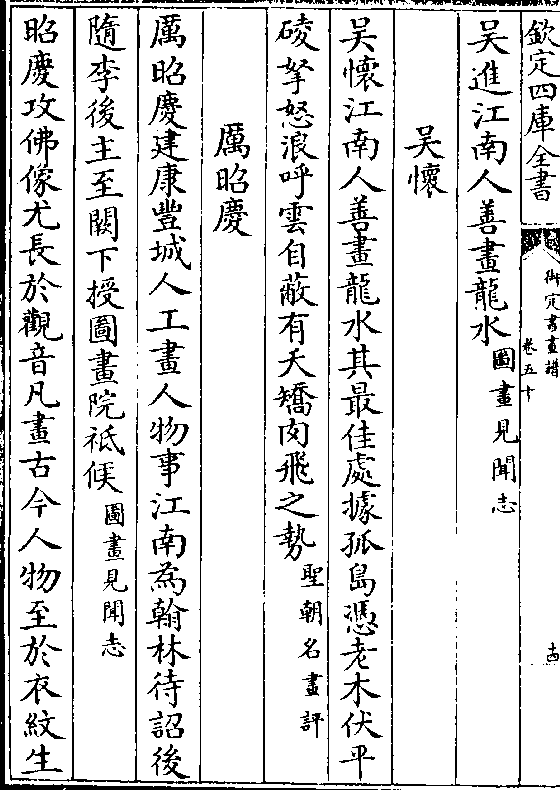 欽定四庫全書
御定書畫譜
卷五十
十四
吳進江南人善畫龍水圖畫見聞志
吳懷
吳懷江南人善畫龍水其最佳處據孤島憑老木伏平
碐拏怒浪呼雲自蔽有夭矯肉飛之勢聖朝名畫評
厲昭慶
厲昭慶建康豐城人工畫人物事江南為翰林待詔後
隨李後主至闕下授圖畫院祗候圖畫見聞志
昭慶攻佛像尤長於觀音凡畫古今人物至於衣紋生